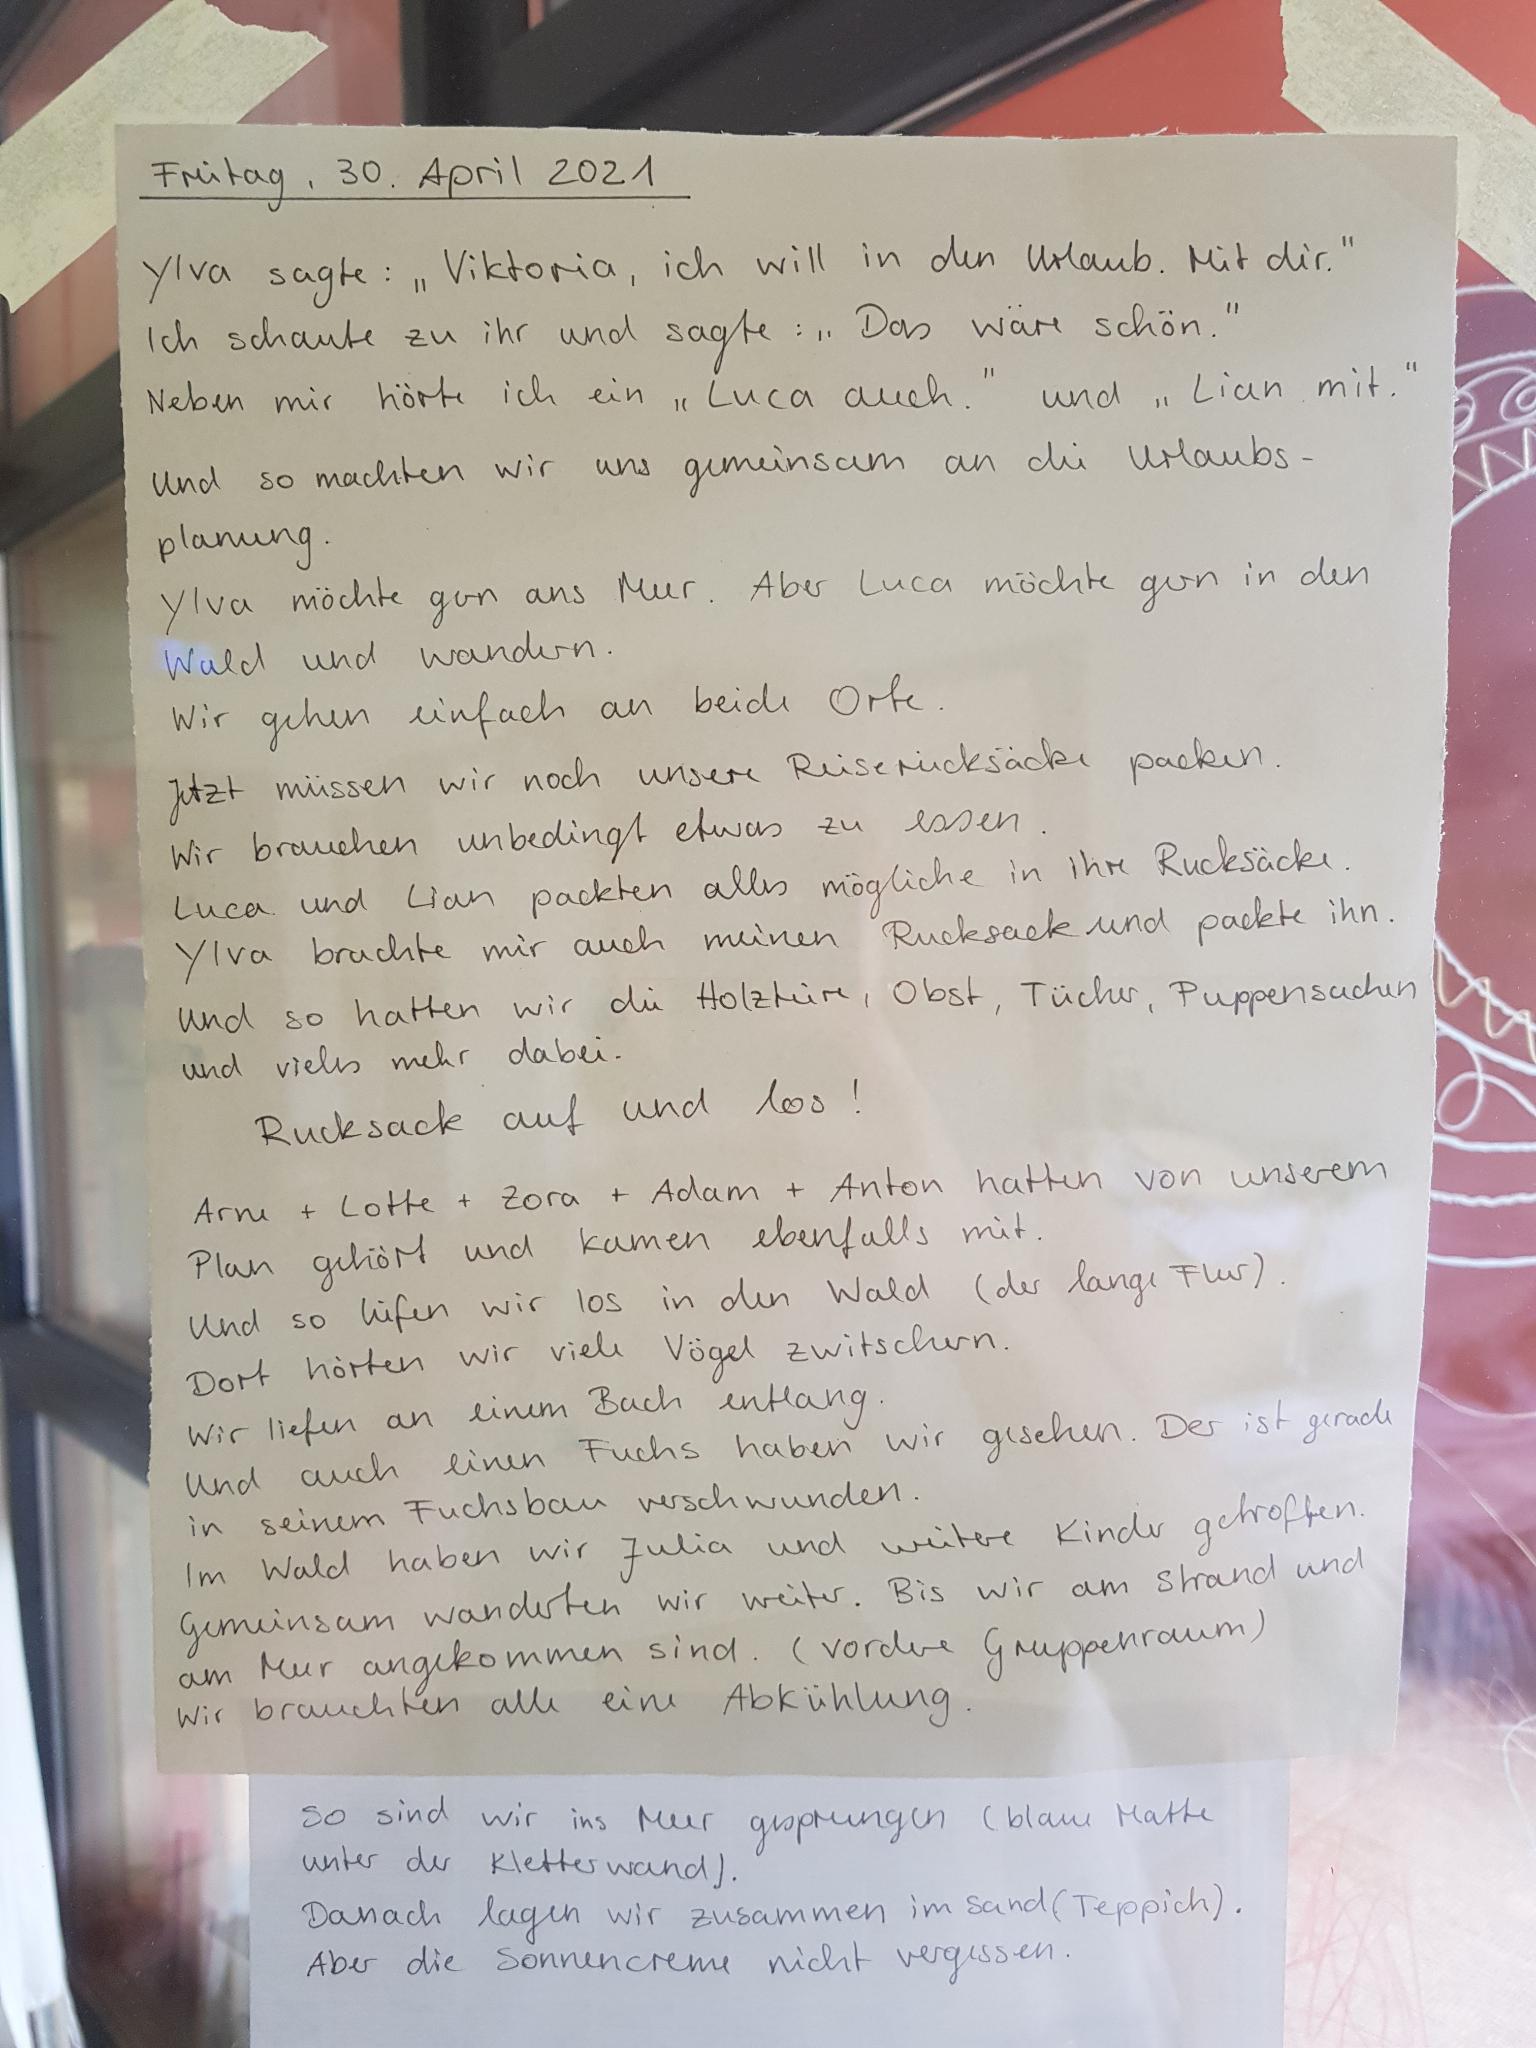 Freitag, 30. April 2021
Ylva sagte: „Viktoria, ich will in den Urlaub. Mit dir."
Ich schaute zu ihr und sagte: „Das wäre schön."
Neben mir hörte ich ein „Luca auch." und „Lian mit."
Und so machten wir uns gemeinsam an die Urlaubs-
planung.
Ylva möchte gern ans Meer. Aber Luca möchte gern in den
Wald und wandern.
Wir gehen einfach an beide Orte.
Jetzt müssen wir noch unsere Reiserücksäcke packen.
Wir brauchen unbedingt etwas zu essen.
Luca und Lian packten alles mögliche in ihre Rucksäcke.
Ylva brachte mir auch meinen Rucksack und packte ihn.
Und so hatten wir die Holztiere, Obst, Tücher, Puppensachen
und vieles mehr dabei.
Rucksack auf und los!
Arne + Lotte + Zora + Adam + Anton hatten von unserem
Plan gehört und kamen ebenfalls mit.
Und so liefen wir los in den Wald (der lange Flur).
Dort hörten wir viele Vögel zwitschern.
Wir liefen an einem Bach entlang.
Und auch einen Fuchs haben wir gesehen. Der ist gerade
in seinem Fuchsbau verschwunden.
Im Wald haben wir Julia und weitere Kinder getroffen.
Gemeinsam wanderten wir weiter. Bis wir am Strand und
am Meer angekommen sind. (vordere Gruppenraum)
Wir brauchten alle eine Abkühlung.
So sind wir ins Meer gesprungen (blaue Matte
unter der Kletterwand).
Danach lagen wir zusammen im Sand (Teppich).
Aber die Sonnencreme nicht vergessen.